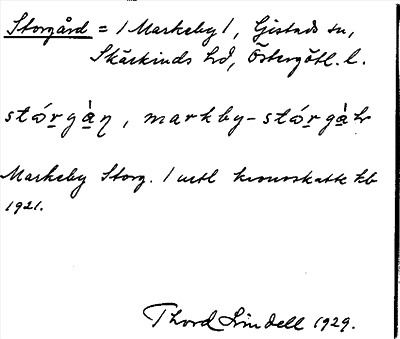 Storgård = / Markeby /, Gistads sn,
Skärkinds hd, Östergötl. l.
stǿrgàn, markby-stǿrgàɳ
Markeby Storg. / 1 mtl kronoskatte kb
1921.
Thord Lindell 1929.